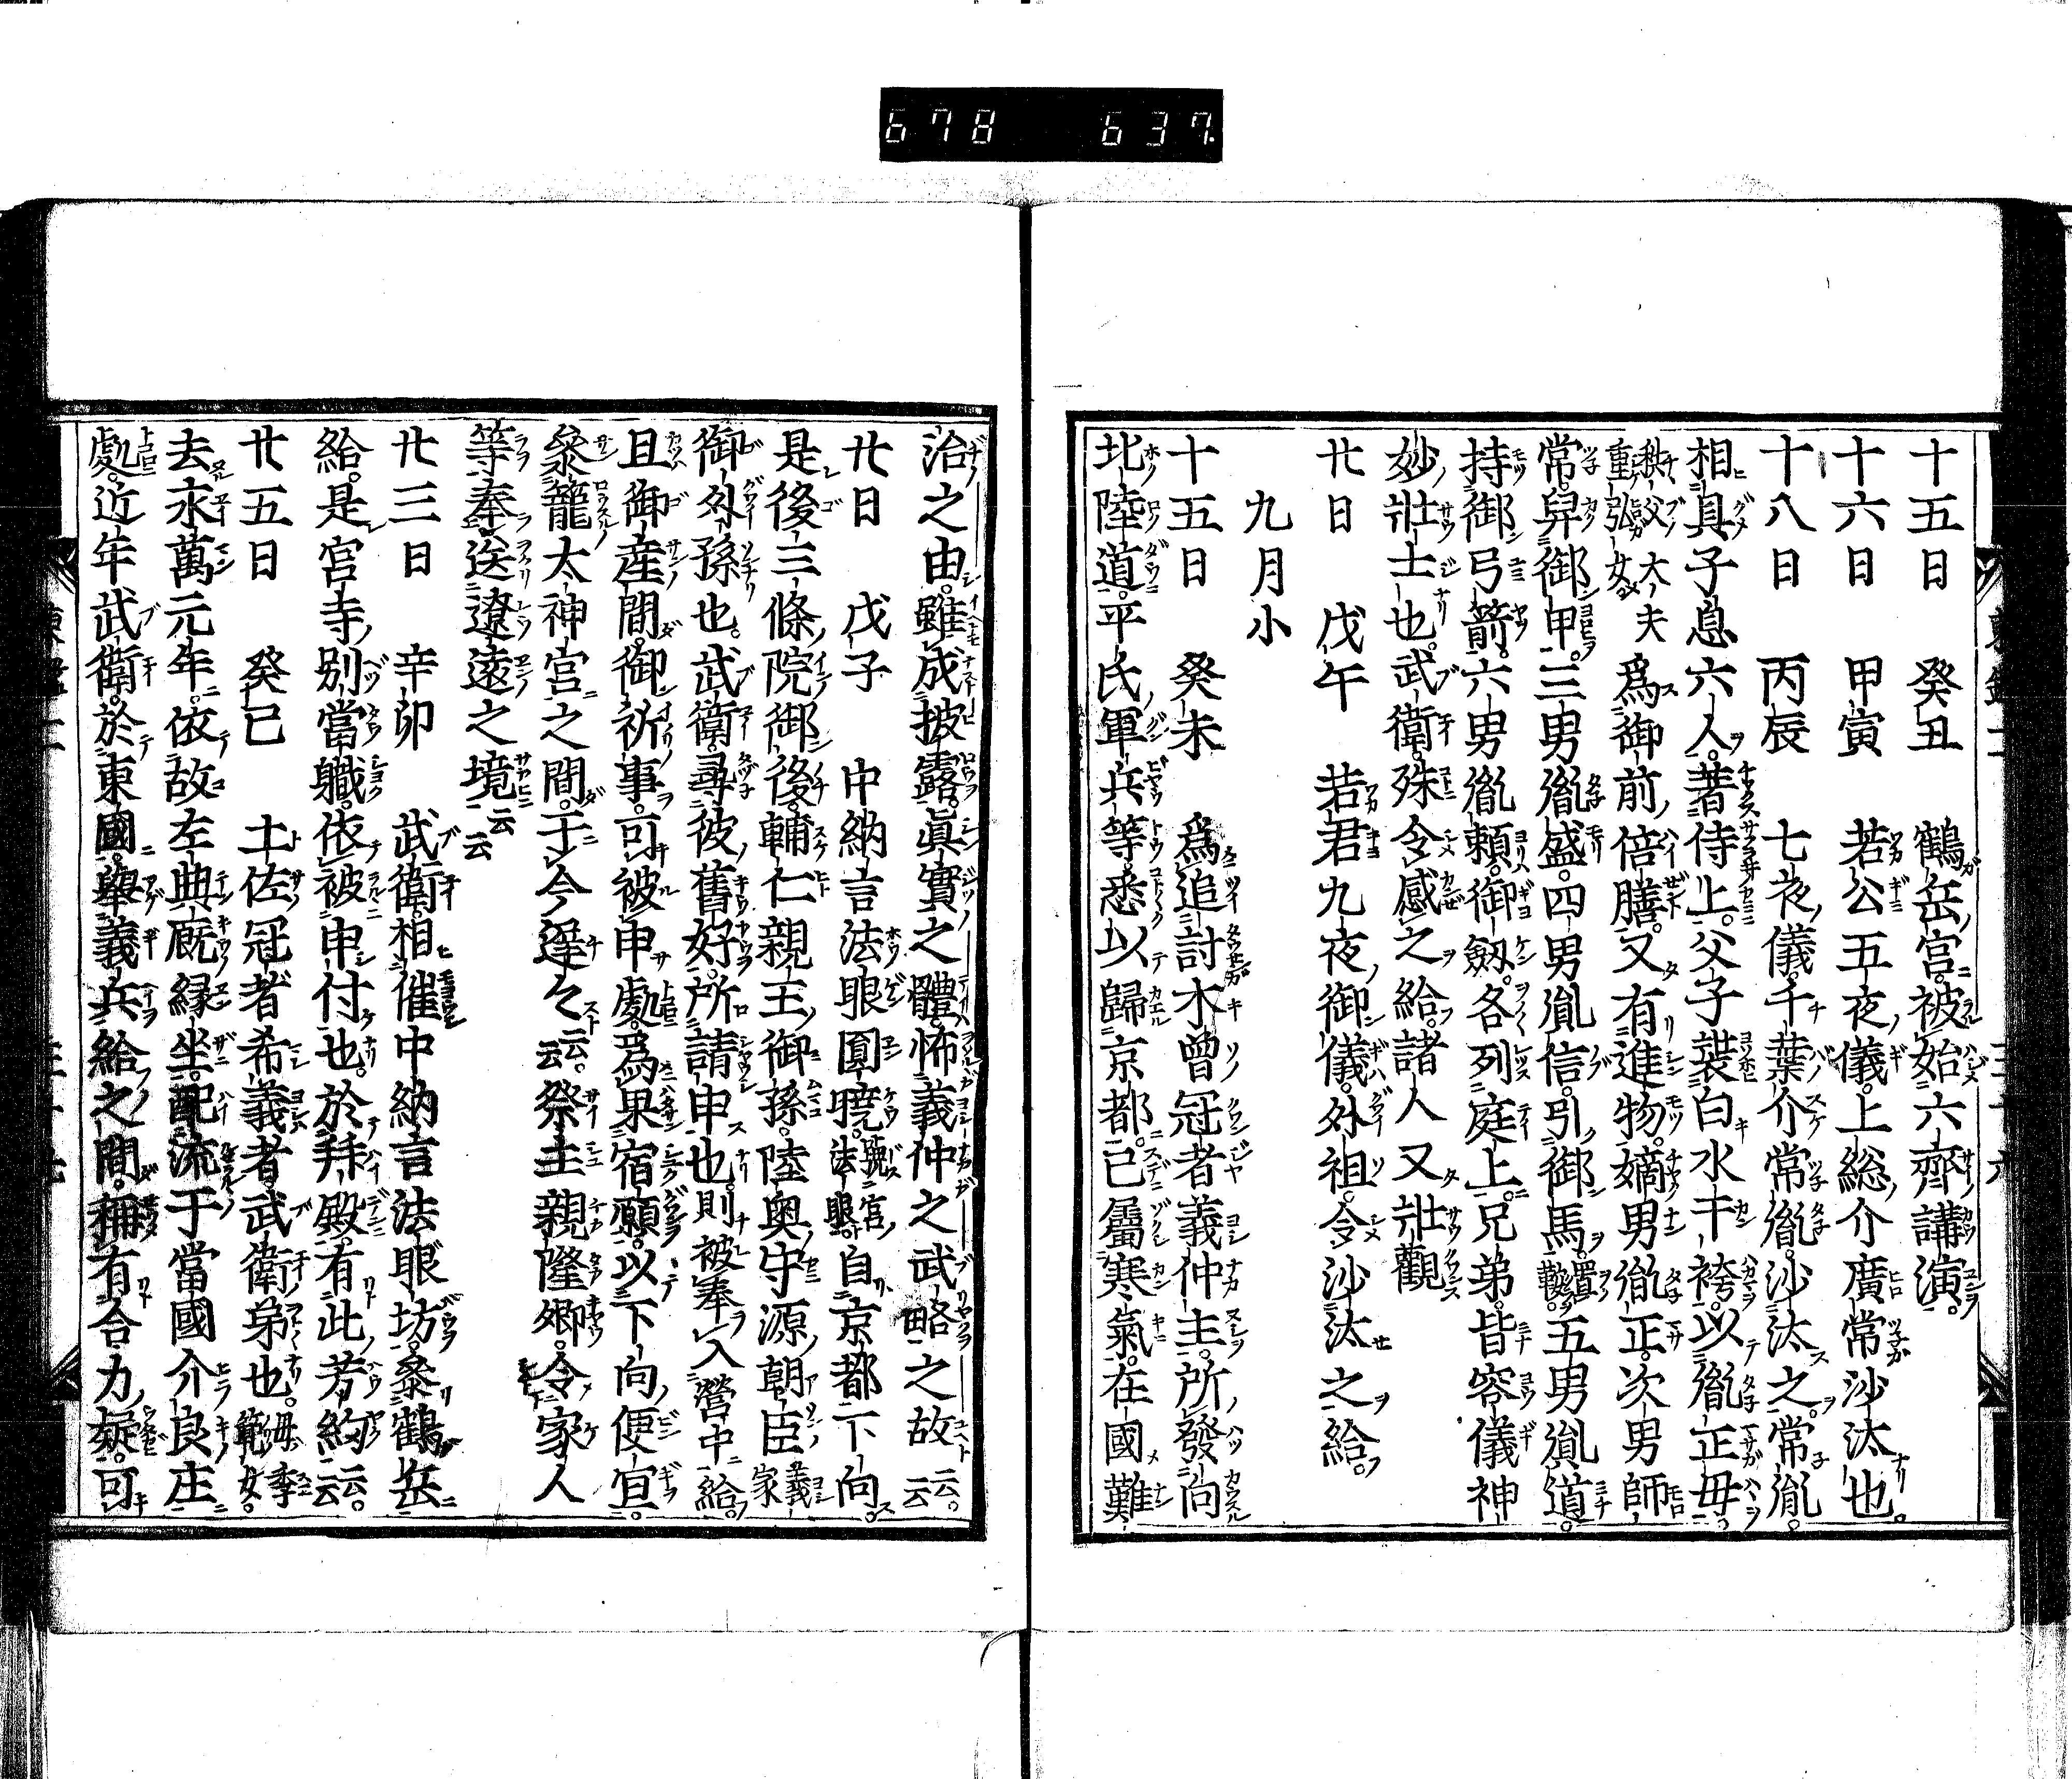 678 637
十五日 癸丑 鶴岳宮。被始六齋講演。
十六日 甲寅 若公五夜儀。上総介廣常沙汰也。
十八日 丙辰 七夜儀。千葉介常胤。沙汰之。常胤。
相具子息六人。著侍上。父子裝白水干袴。以胤正母。
秩父大夫重弘女爲御前陪膳。又有進物。嫡男胤正。次男師
常。舁御甲。三男胤盛。四男胤信。引御馬。置鞍。五男胤道。
持御弓箭。六男胤頼。御劔。各列庭上。兄弟。皆容儀神
妙壯士也。武衛。殊令感之給。諸人又壯觀
廿日 戊午 若君九夜御儀。外祖。令沙汰之給。
九月小
十五日 癸未 爲追討木曾冠者義仲主。所發向
北陸道。平氏軍兵等。悉以歸京都。已屬寒氣。在國難
治之由。雖成披露。眞實之體。怖義仲之武略之故云云。
廿日 戊子 中納言法眼圓曉。號宮法眼。自京都下向。
是後三條院御後。輔仁親王御孫。陸奥守源朝臣義家
御外孫也。武衛。尋彼舊好。所請申也。則被奉入營中給。
且御産間。御祈事。可被申處。爲果宿願。以下向便宜。
參籠太神宮之間。于今遲々云云。祭主親隆卿。令家人
等奉送遼遠之境云云
廿三日 辛卯 武衛。相催中納言法眼坊。參鶴岳
給。是宮寺別當職。依被申付也。於拜殿。有此芳約云云。
廿五日 癸巳 土佐冠者希義者。武衛弟也。母季範女。
去永萬元年。依故左典廐縁坐。配流于當國介良庄
處。近年武衛於東國。擧義兵給之間。稱有合力疑。可